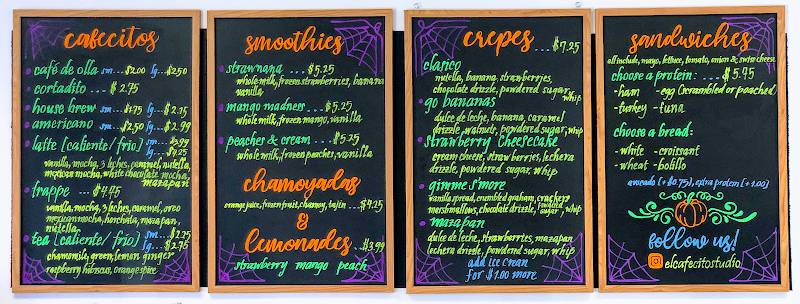 cafecitos
café de olla sm...$2.00 lg...$2.50
cortadito ... $2.75
house brew sm...$1.75 lg...$2.75
americano sm...$2.50 lg...$2.99
latte [caliente/frio] sm...$3.99
lg...$4.25
vanilla, mocha, 3 leches, caramel, nutella,
mexican mocha, white chocolate mocha,
mazapan
frappe ... $4.95
vanilla, mocha, 3 leches, caramel, oreo
mexican mocha, horchata, mazapan,
nutella
tea [caliente/frio] sm...$2.25
lg...$2.75
chamomile, green, lemon ginger
raspberry hibiscus, orange spice
smoothies
strawnana .... $5.25
whole milk, frozen strawberries, banana
vanilla
mango madness ... $5.25
whole milk, frozen mango, vanilla
peaches & cream ... $5.25
whole milk, frozen peaches, vanilla
chamoyadas
orange juice, frozen fruit, chamoy, tajin ....$4.25
&
lemonades ...$3.99
strawberry mango peach
crepes ....$7.25
clasico
nutella, banana, strawberries,
chocolate drizzle, powdered sugar, whip
go bananas
dulce de leche, banana, caramel
drizzle, walnuts, powdered sugar, whip
strawberry cheesecake
cream cheese, strawberries, lechera
drizzle, powdered sugar, whip
gimme s'more
vanilla spread, crumbled graham, crackers
marshmallows, chocolate drizzle, powdered sugar, whip
mazapan
dulce de leche, strawberries, mazapan
lechera drizzle, powdered sugar, whip
add ice cream
for $1.00 more
sandwiches
all include, mayo, lettuce, tomato, onion & swiss cheese
choose a protein: ... $5.95
-ham -egg (scrambled or poached)
-turkey -tuna
choose a bread:
-white -croissant
-wheat -bolillo
avocado (+$0.75), extra protein (+1.00)
follow us!
elcafecitostudio